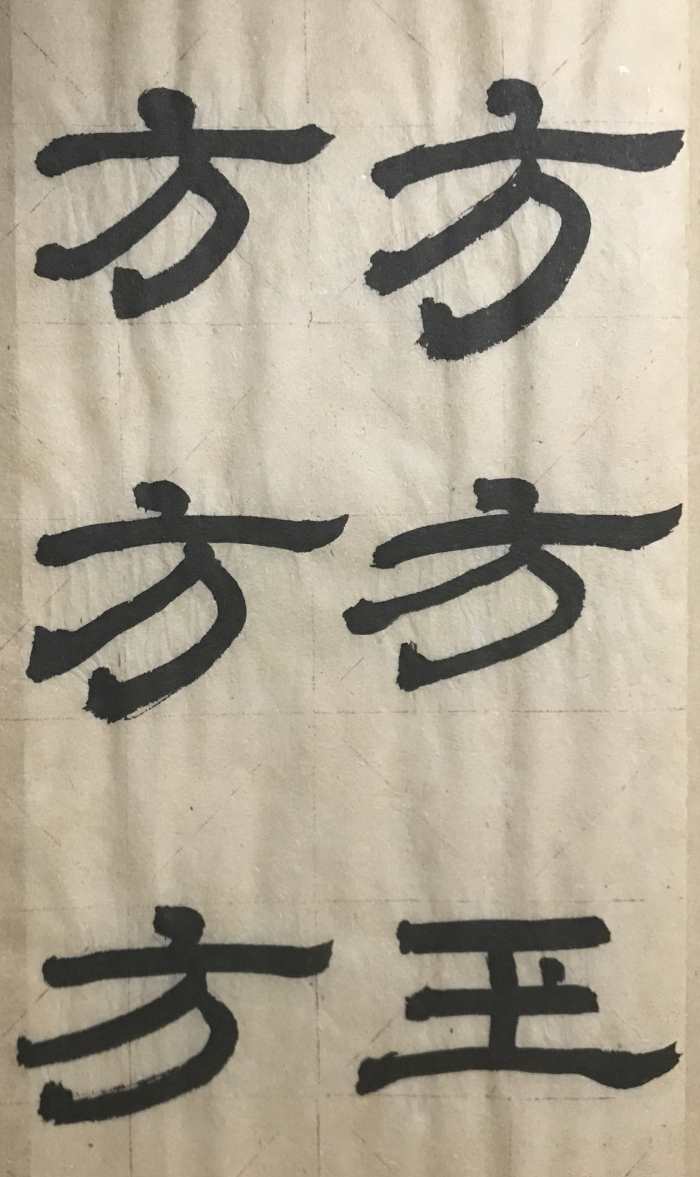 方方玉
方方方